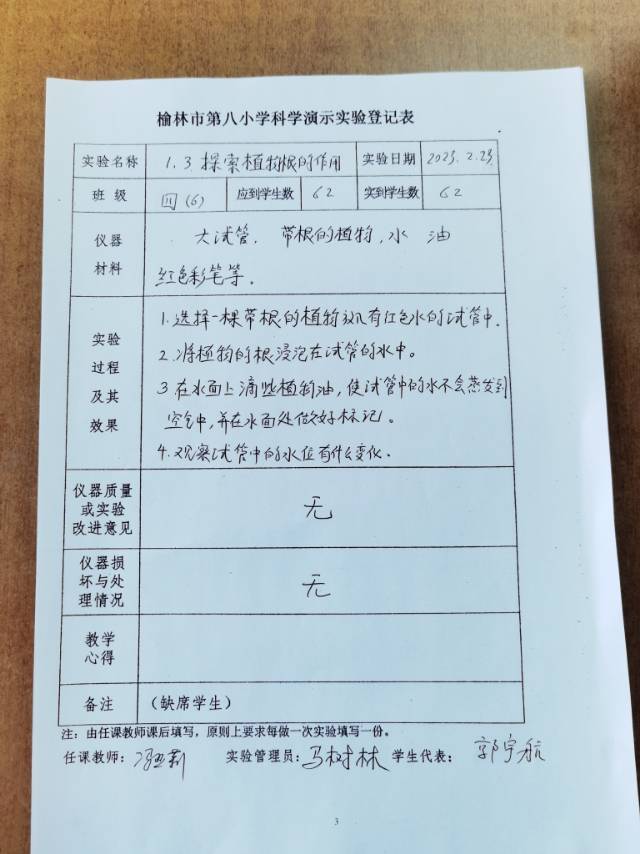 榆林市第八小学科学演示实验登记表
实验名称 1.3.探索植物根的作用 实验日期 2023.2.23
班级 四(6) 应到学生数 62 实到学生数 62
仪器材料 大试管. 带根的植物,水 油
红色彩笔等.
实验过程及其效果
1.选择一棵带根的植物放入有红色水的试管中.
2.将植物的根浸泡在试管的水中。
3在水面上滴些植物油,使试管中的水不会蒸发到
空气中,并在水面处做好标记。
4.观察试管中的水位有什么变化.
仪器质量或实验改进意见 无
仪器损坏与处理情况 无
教学心得
备注 (缺席学生)
注:由任课教师课后填写,原则上要求每做一次实验填写一份。
任课教师: 实验管理员:马树林 学生代表: 郭宇航
3